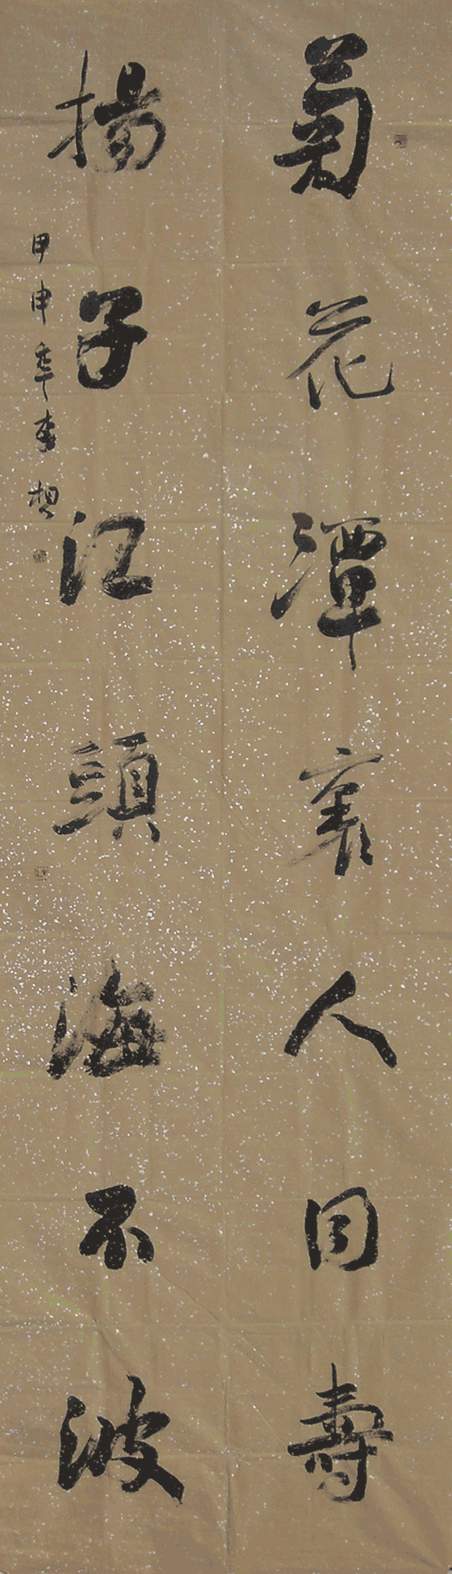 菊花潭裏人同壽
揚子江頭海不波
甲申年李想